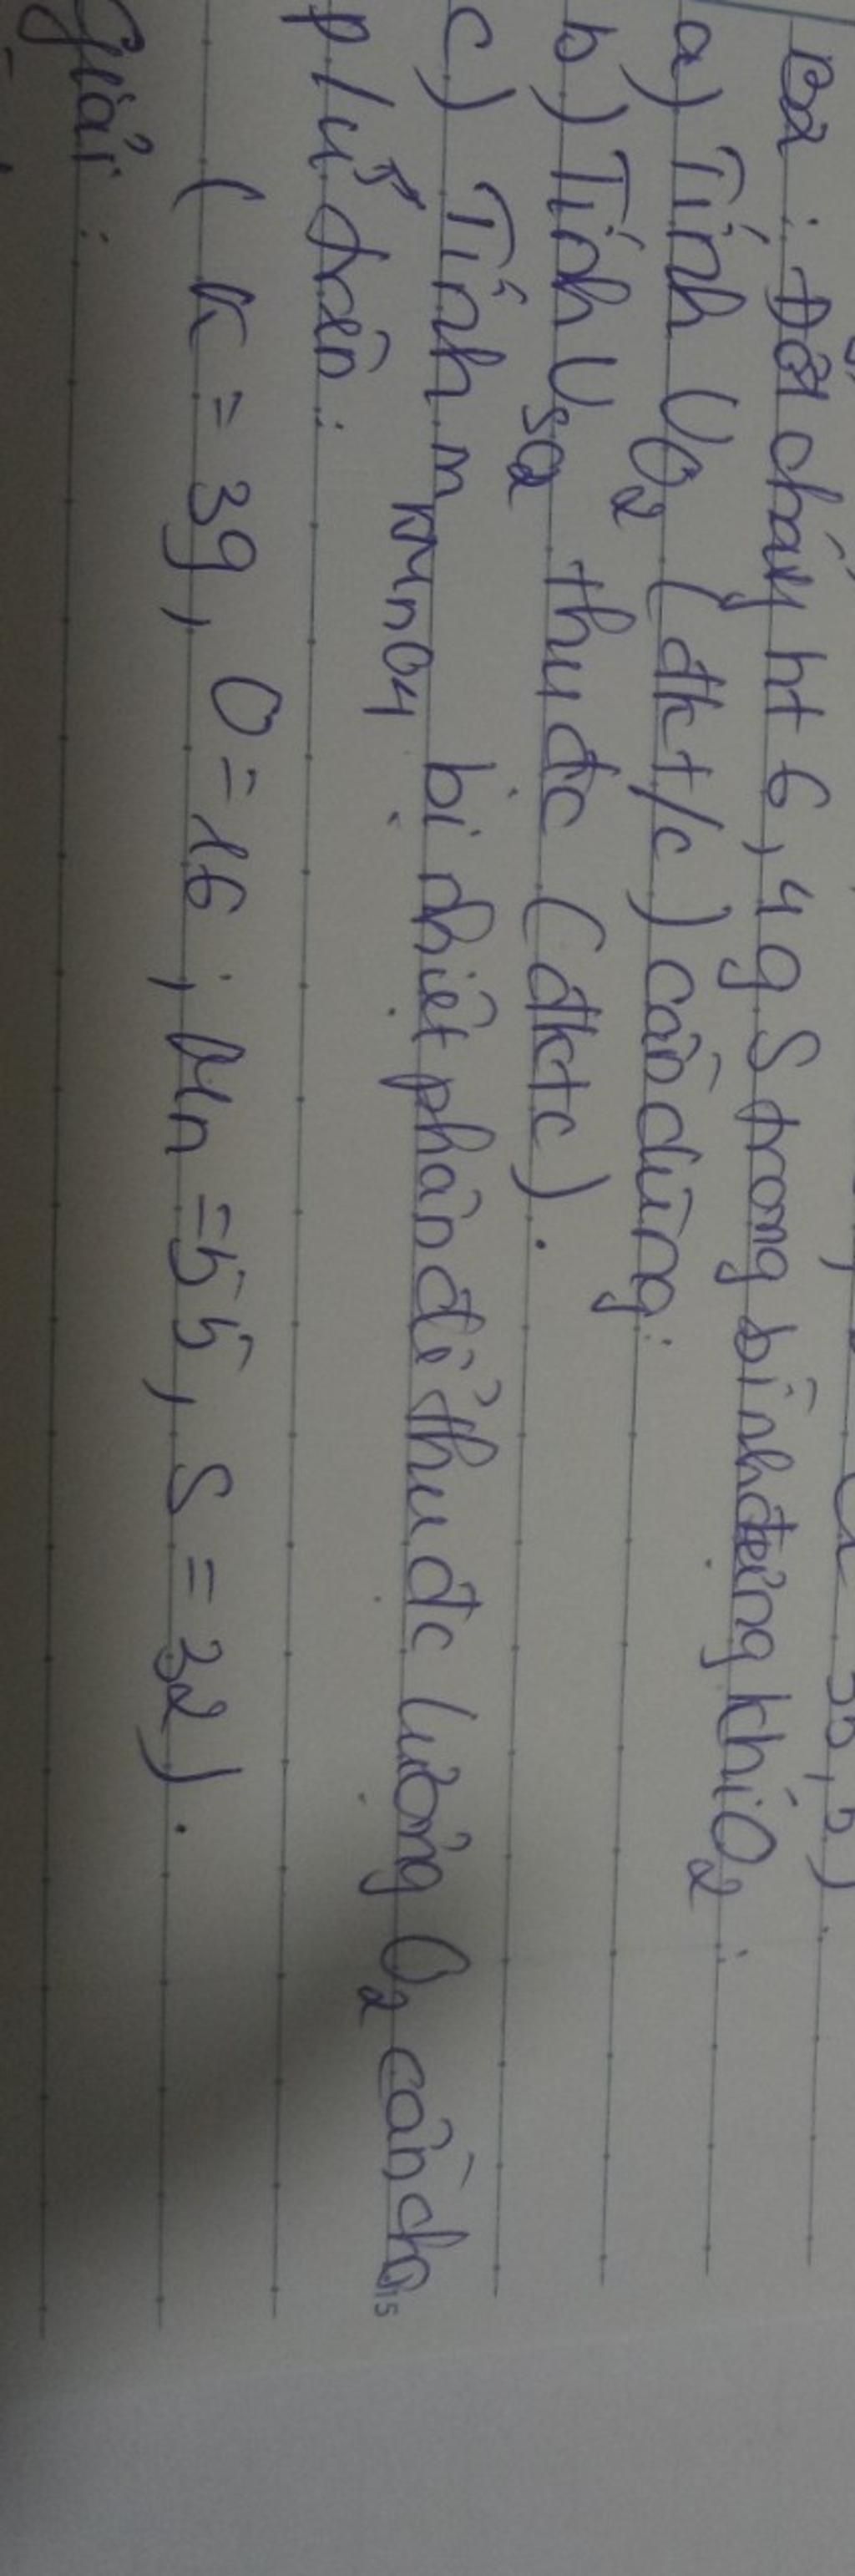 B2: Đốt cháy ht 6,4g S trong bình đựng khí O2
a) Tính VO2 (đkt/c) cần dùng.
b) Tính VSO2 thu đc (đktc).
c) Tính mKMnO4 bị nhiệt phân để thu đc lượng O2 cần cho
p/ứ trên.
(K = 39, O = 16, Mn = 55, S = 32).
Giải:
15